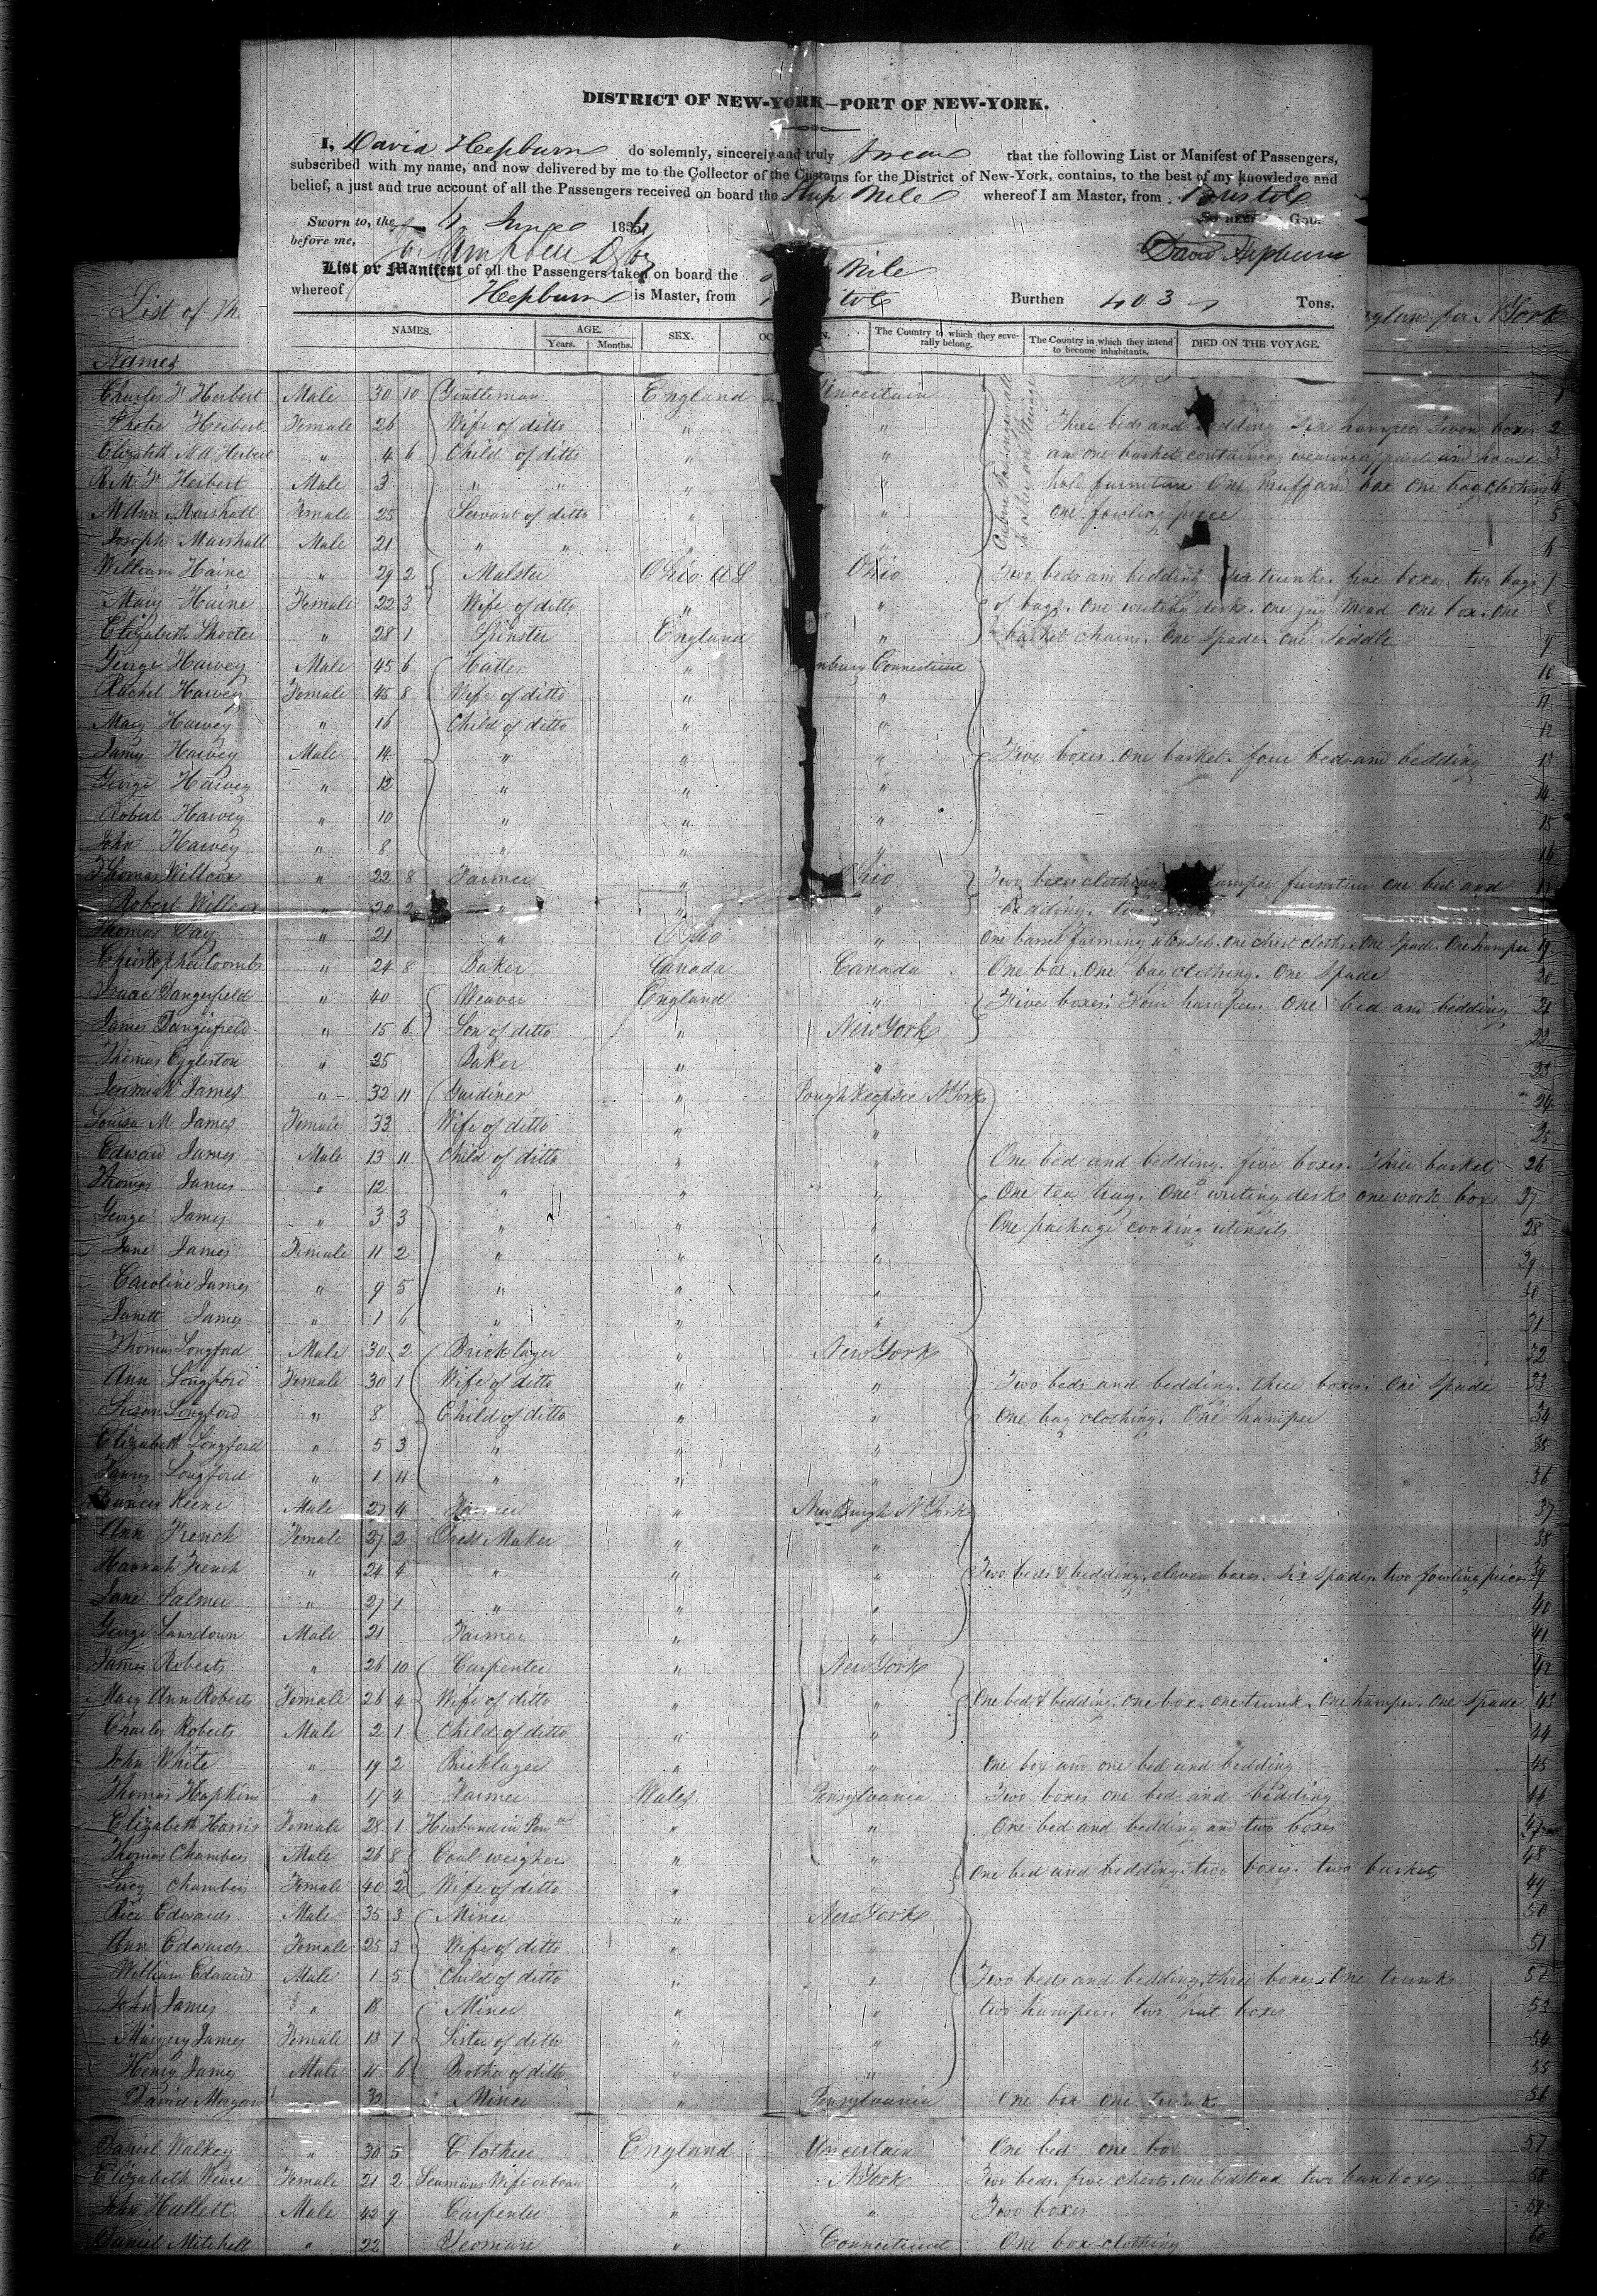 DISTRICT OF NEW-YORK—PORT OF NEW-YORK.
I, David Hepburn do solemnly, sincerely and truly Swear that the following List or Manifest of Passengers,
subscribed with my name, and now delivered by me to the Collector of the Customs for the District of New-York, contains, to the best of my knowledge and
belief, a just and true account of all the Passengers received on board the Ship Nile whereof I am Master, from Bristol
Sworn to, the 4 June 183
before me,
David Hepburn
List or Manifest of all the Passengers taken on board the Nile
whereof Hepburn is Master, from Burthen 403 Tons.
List of England for N York
NAMES. AGE. Years. Months. SEX. The Country to which they severally belong. The Country in which they intend to become inhabitants. DIED ON THE VOYAGE.
Names
Charles Herbert Male 30 10 Gentleman England Uncertain 1
Herbert Female 26 Wife of ditto " " Three beds and bedding Six hampers Seven boxes 2
Elizabeth Herbert " 4 6 Child of ditto " " and one basket containing wearing apparel and house 3
Herbert Male 3 " " " " hold furniture One box One bag clothing 4
M Ann Marshall Female 25 Servant of ditto " " one fowling piece 5
Joseph Marshall Male 21 " " " " 6
William Haine " 29 2 Malster Ohio Ohio Two beds and bedding Six trunks five boxes two bags 7
Mary Haine Female 22 3 Wife of ditto " " One writing desk. One jug Mead One box. One 8
Elizabeth Shooter " 28 1 Spinster England " basket chains. One Spade. One Saddle 9
George Harvey Male 45 6 Hatter " nbury Connecticut 10
Rachel Harvey Female 45 8 Wife of ditto " " 11
Mary Harvey " 16 Child of ditto " " 12
James Harvey Male 14 " " " Five boxes. One basket. four beds and bedding 13
George Harvey " 12 " " " 14
Robert Harvey " 10 " " " 15
John Harvey " 8 " " " 16
Thomas Willcox " 22 8 Farmer " Ohio Two boxes clothing hamper furniture one bed and 17
Robert Willcox " 20 2 " " " bedding.
Thomas Day " 21 " Ohio " One barrel farming utensils. One chest cloths. One Spade. One hamper 19
Christopher Coombs " 24 8 Baker Canada Canada One box. One bag clothing. One Spade 20
Isaac Dangerfield " 40 Weaver England " Five boxes. Four hampers. One bed and bedding 21
James Dangerfield " 15 6 Son of ditto " New York 22
Thomas Eggliston " 25 Baker " " 23
Jeremiah James " 32 11 Gardiner " Poughkeepsie N York 24
Louisa M James Female 33 Wife of ditto " " 25
Edward James Male 13 11 Child of ditto " " One bed and bedding. five boxes. Three baskets 26
Thomas James " 12 " " " One tea tray. One writing desk one work box 27
George James " 3 3 " " " One package cooking utensils 28
Jane James Female 11 2 " " " 29
Caroline James " 9 5 " " " 30
James " 1 6 " " " 31
Thomas Longford Male 30 2 Bricklayer " New York 32
Ann Longford Female 30 1 Wife of ditto " " Two beds and bedding. three boxes. One Spade 33
Susan Longford " 8 Child of ditto " " One bag clothing. One hamper 34
Elizabeth Longford " 5 3 " " " 35
Longford " 1 11 " " " 36
Francis Keene Male 27 4 Farmer " New Burgh N York 37
Ann French Female 27 2 Dress Maker " " 38
Hannah French " 24 4 " " " Two beds & bedding, eleven boxes. Six Spades. two fowling pieces 39
Jane Palmer " 27 1 " " " 40
George Lansdown Male 21 Farmer " " 41
James Roberts " 26 10 Carpenter " New York 42
Mary Ann Roberts Female 26 4 Wife of ditto " " One bed & bedding. One box. One trunk. One hamper. One Spade 43
Charles Roberts Male 2 1 Child of ditto " " 44
John White " 19 2 Bricklayer " " One box and one bed and bedding 45
Thomas Hopkins " 17 4 Farmer Wales Pensylvania Two boxes one bed and bedding 46
Elizabeth Harris Female 28 1 Husband in " " One bed and bedding and two boxes 47
Thomas Chambers Male 26 8 Coal weigher " " 48
Lucy Chambers Female 40 2 Wife of ditto " " One bed and bedding. two boxes. two baskets 49
Rice Edwards Male 35 3 Miner " New York 50
Ann Edwards Female 25 3 Wife of ditto " " 51
William Edwards Male 1 5 Child of ditto " " Two beds and bedding, three boxes. One trunk 52
John James " 18 Miner " " two hampers. two hat boxes 53
Margery James Female 13 7 Sister of ditto " " 54
Henry James Male 11 6 Brother of ditto " " 55
David Morgan " 32 Miner " Pensylvania One box One trunk 56
Daniel Walkey " 30 5 Clothier England Uncertain One bed one box 57
Elizabeth Female 21 2 Seamans Wife on board " N York Two beds. five chests. one bedstead two ban boxes 58
John Hallett Male 42 9 Carpenter " " Two boxes 59
Daniel Mitchell " 22 Yeoman " Connecticut One box clothing 60